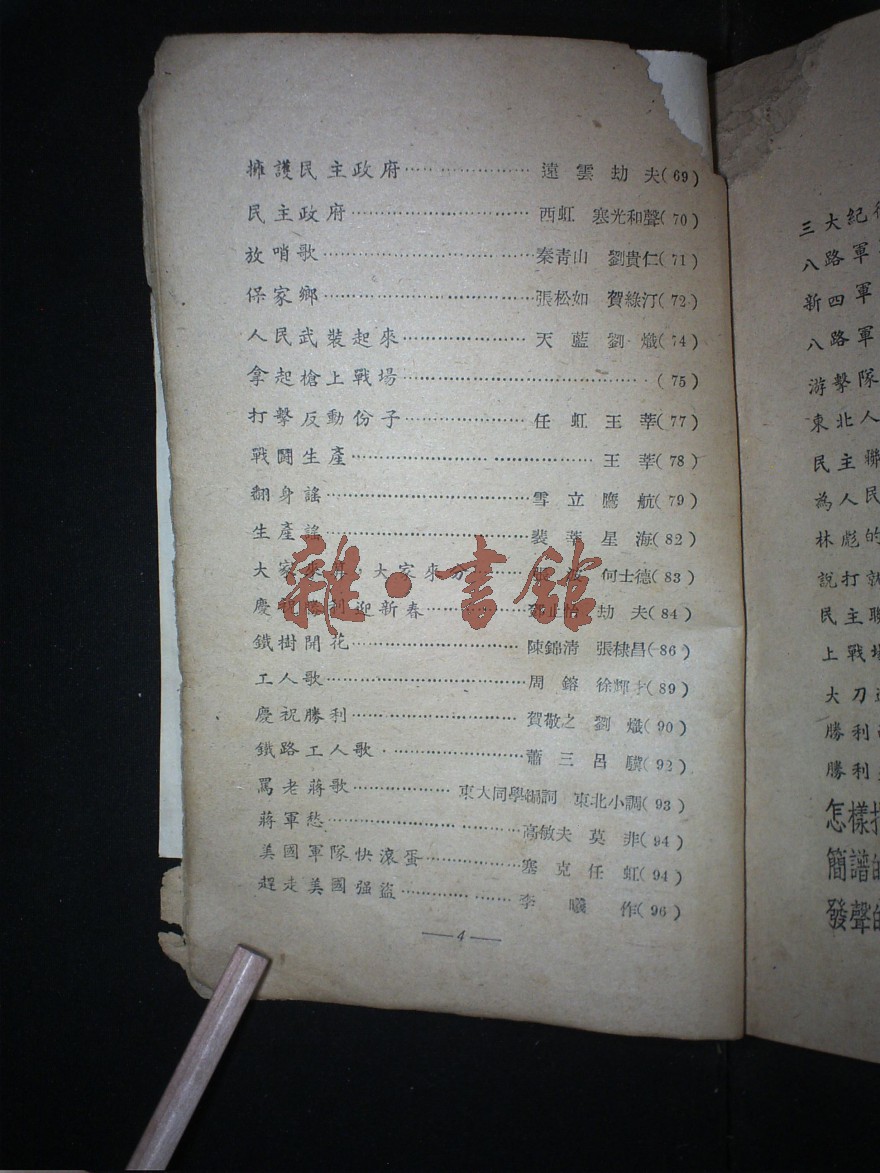 擁護民主政府……………………遠雲 劫夫(69)
民主政府……………………西虹 塞光和聲(70)
放哨歌……………………秦青山 劉貴仁(71)
保家鄉……………………張松如 賀綠汀(72)
人民武裝起來……………………天藍 劉熾(74)
拿起槍上戰場……………………(75)
打擊反動份子……………………任虹 王莘(77)
戰鬪生產……………………王莘(78)
翻身謠……………………雪立 鷹航(79)
生產謠……………………裴莘 星海(82)
大家來 大家來 何士德(83)
慶祝勝利迎新春……………………劫夫(84)
鐵樹開花……………………陳錦清 張棣昌(86)
工人歌……………………周鎔 徐輝才(89)
慶祝勝利……………………賀敬之 劉熾(90)
鐵路工人歌……………………蕭三 呂驥(92)
罵老蔣歌……………………東大同學編詞 東北小調(93)
蔣軍愁……………………高敏夫 莫非(94)
美國軍隊快滾蛋……………………塞克 任虹(94)
趕走美國强盜……………………李曦作(96)
—4—
三大紀
八路軍
新四軍
八路軍
游擊隊
東北人
民主聯
為人民
林彪的
說打就
民主聯
上戰場
大刀
勝利
勝利
怎樣
簡譜的
發聲的
雜·書館